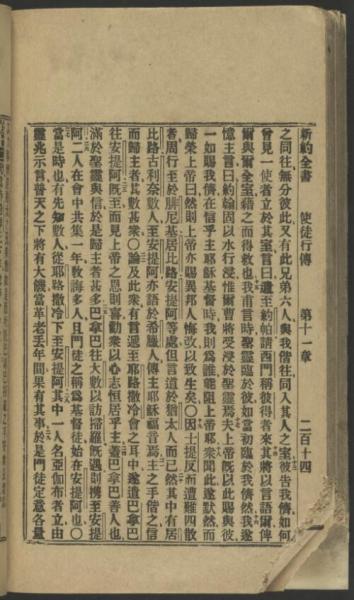 新約全書　使徒行傳　第十一章　二百十四
之同往無分彼此又有此兄弟六人與我偕往同入其人之室彼告我儕如何
曾見一使者立於其室言曰遣至約帕請西門稱彼得者來其將以言語爾傳
爾與爾全室藉之而得救也我甫言時聖靈臨於彼如當初臨於我儕然我遂
憶主言曰約翰固以水行浸惟爾曹將受浸於聖靈焉夫上帝既以此賜與彼
一如賜我儕在信乎主耶穌基督時我則為誰能阻上帝耶衆聞此遂默然而
歸榮上帝曰然則上帝亦賜異邦人悔改以致生矣〇因士提反而遭難四散
者周行至於腓尼基居比路安提阿等處但言道於猶太人而已然其中有居
比路古利奈數人至安提阿亦語於希臘人傳主耶穌福音焉主之手偕之信
而歸主者其數甚衆〇論及此衆有言遐至耶路撒冷會之耳中遂遣巴拿巴
往安提阿既至而見上帝之恩則喜勸衆以心志恒居乎主蓋巴拿巴善人也
滿於聖靈與信於是歸主者甚多巴拿巴往大數以訪掃羅既遇則携至安提
阿二人在會中共集一年敎誨多人且門徒之稱為基督徒始在安提阿也〇
當是時也有先知數人從耶路撒冷下至安提阿其中一人名亞伽布者立由
靈兆示言普天之下將有大饑當革老丟年間果有其事於是門徒定意各量